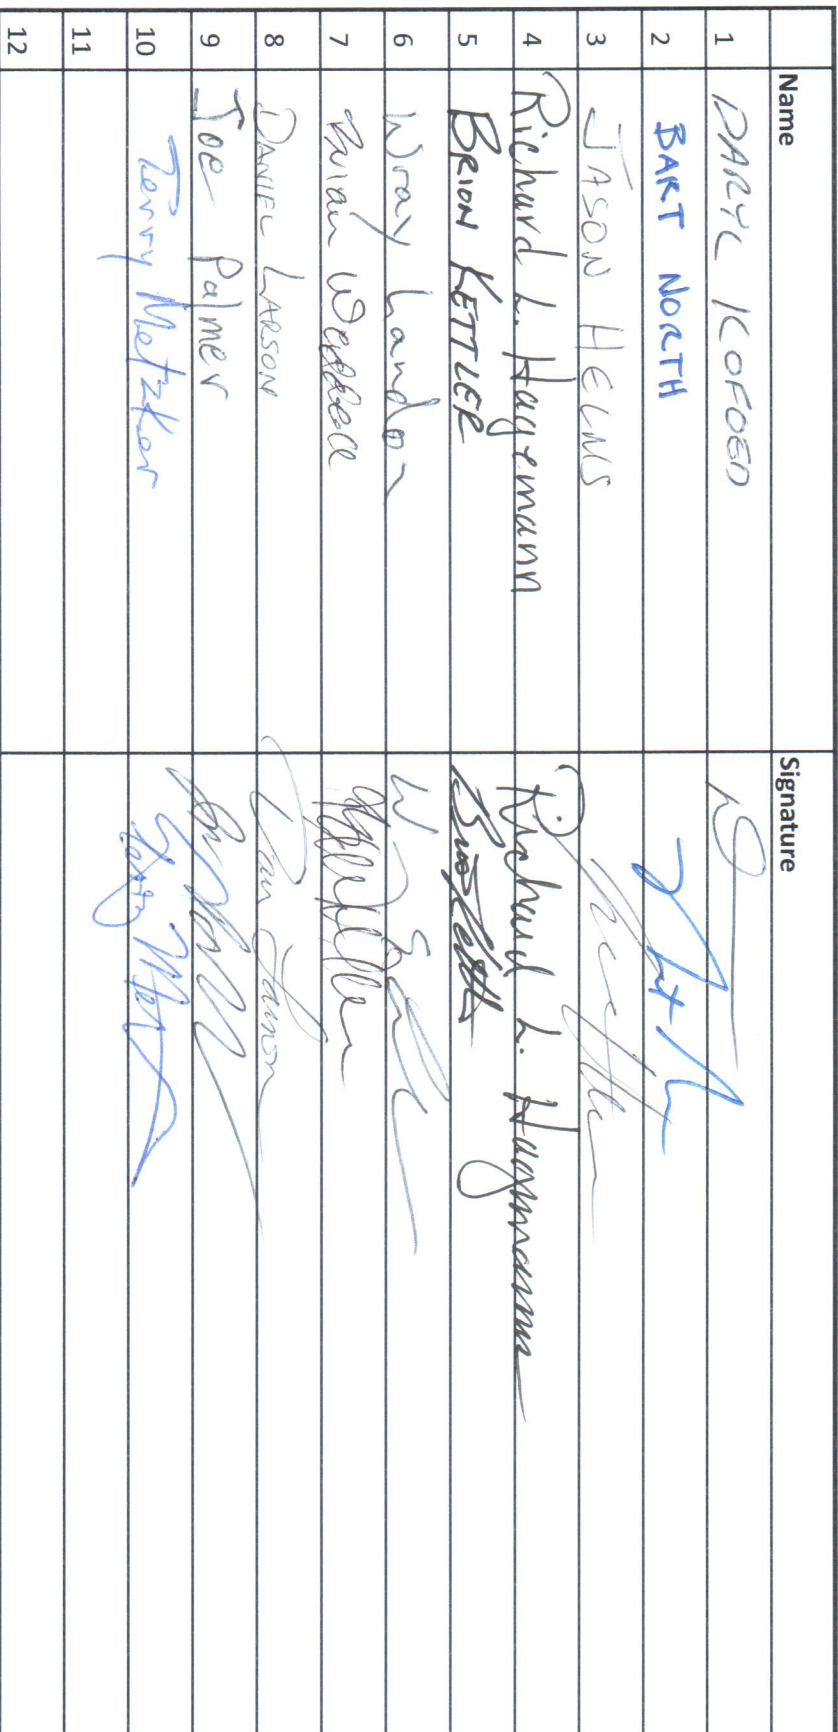 Name Signature
1 DARYL KOFOED
2 BART NORTH
3 JASON HELMS
4 Richard L. Hagemann Richard L. Hagemann
5 BRION KETTLER
6 Wray Landon
7 Brian
8 DANIEL LARSON Dan Larson
9 Joe Palmer
10 Terry Metzker
11
12